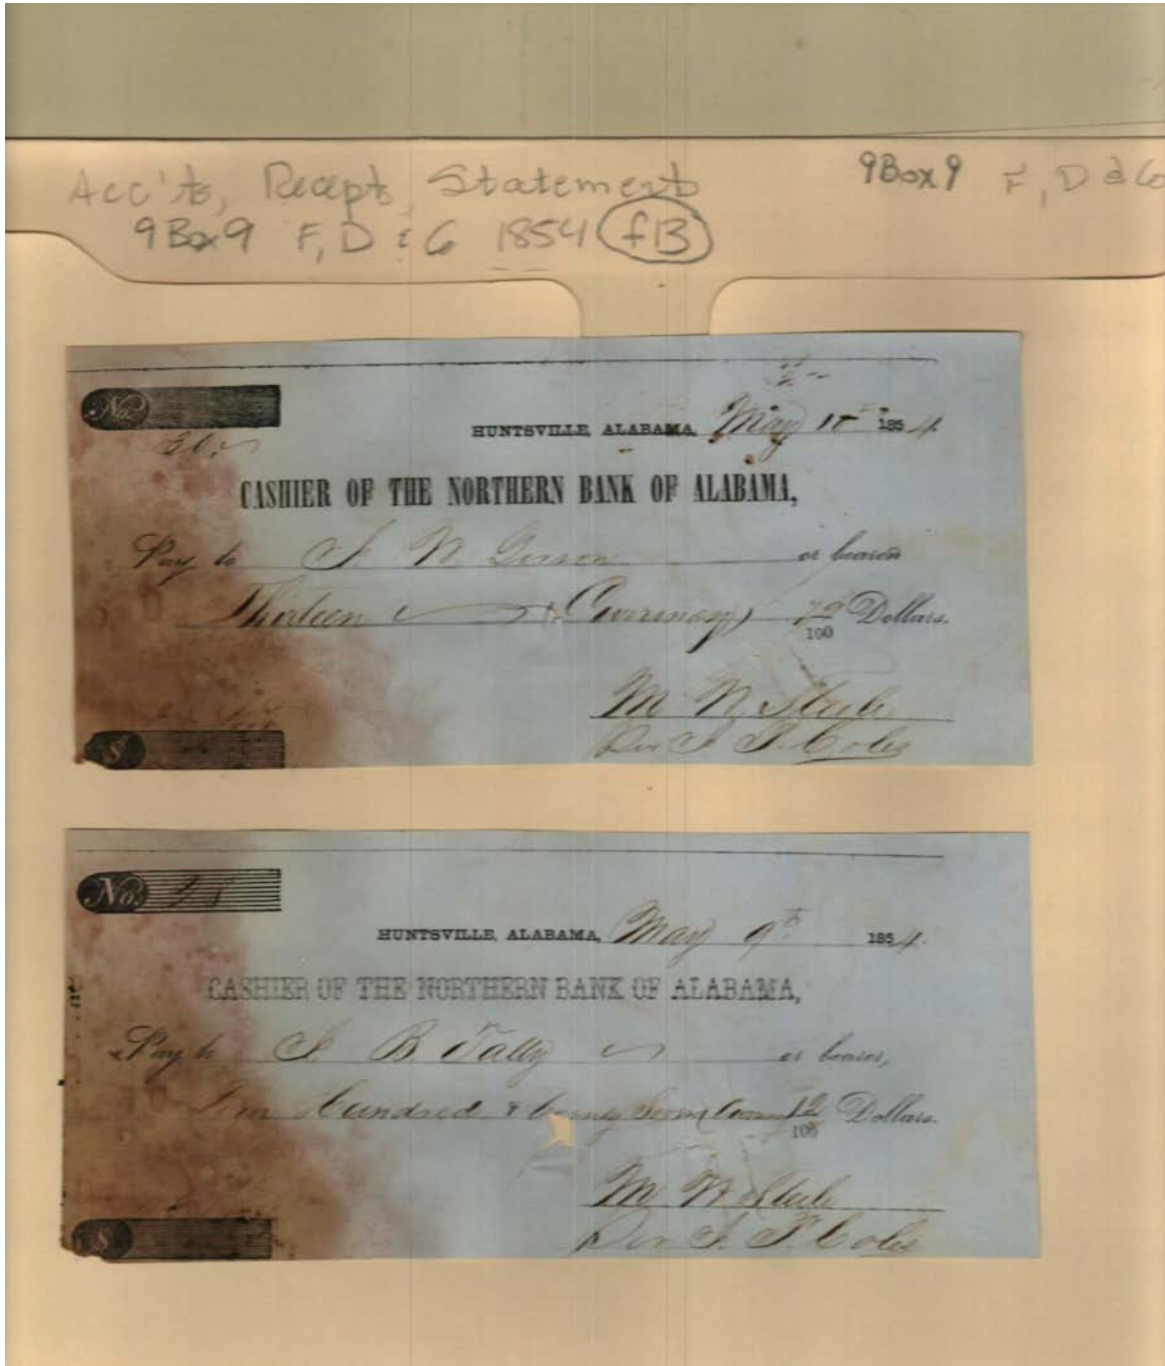 Acc'ts, Recepts, Statements
9Box9 F, D & G 1854 f13
9Box9 F, D & G
No.
30
HUNTSVILLE, ALABAMA, May 1854.
CASHIER OF THE NORTHERN BANK OF ALABAMA,
Pay to J W or bearer
Thirteen (Currency) 79/100 Dollars.
$
M W Steele
Per J. T. Coles
No.
HUNTSVILLE, ALABAMA, May 9th 1854.
CASHIER OF THE NORTHERN BANK OF ALABAMA,
Pay to J B Tally or bearer,
Hundred & Twenty Seven 12/100 Dollars.
$
M W Steele
Per J. T. Coles